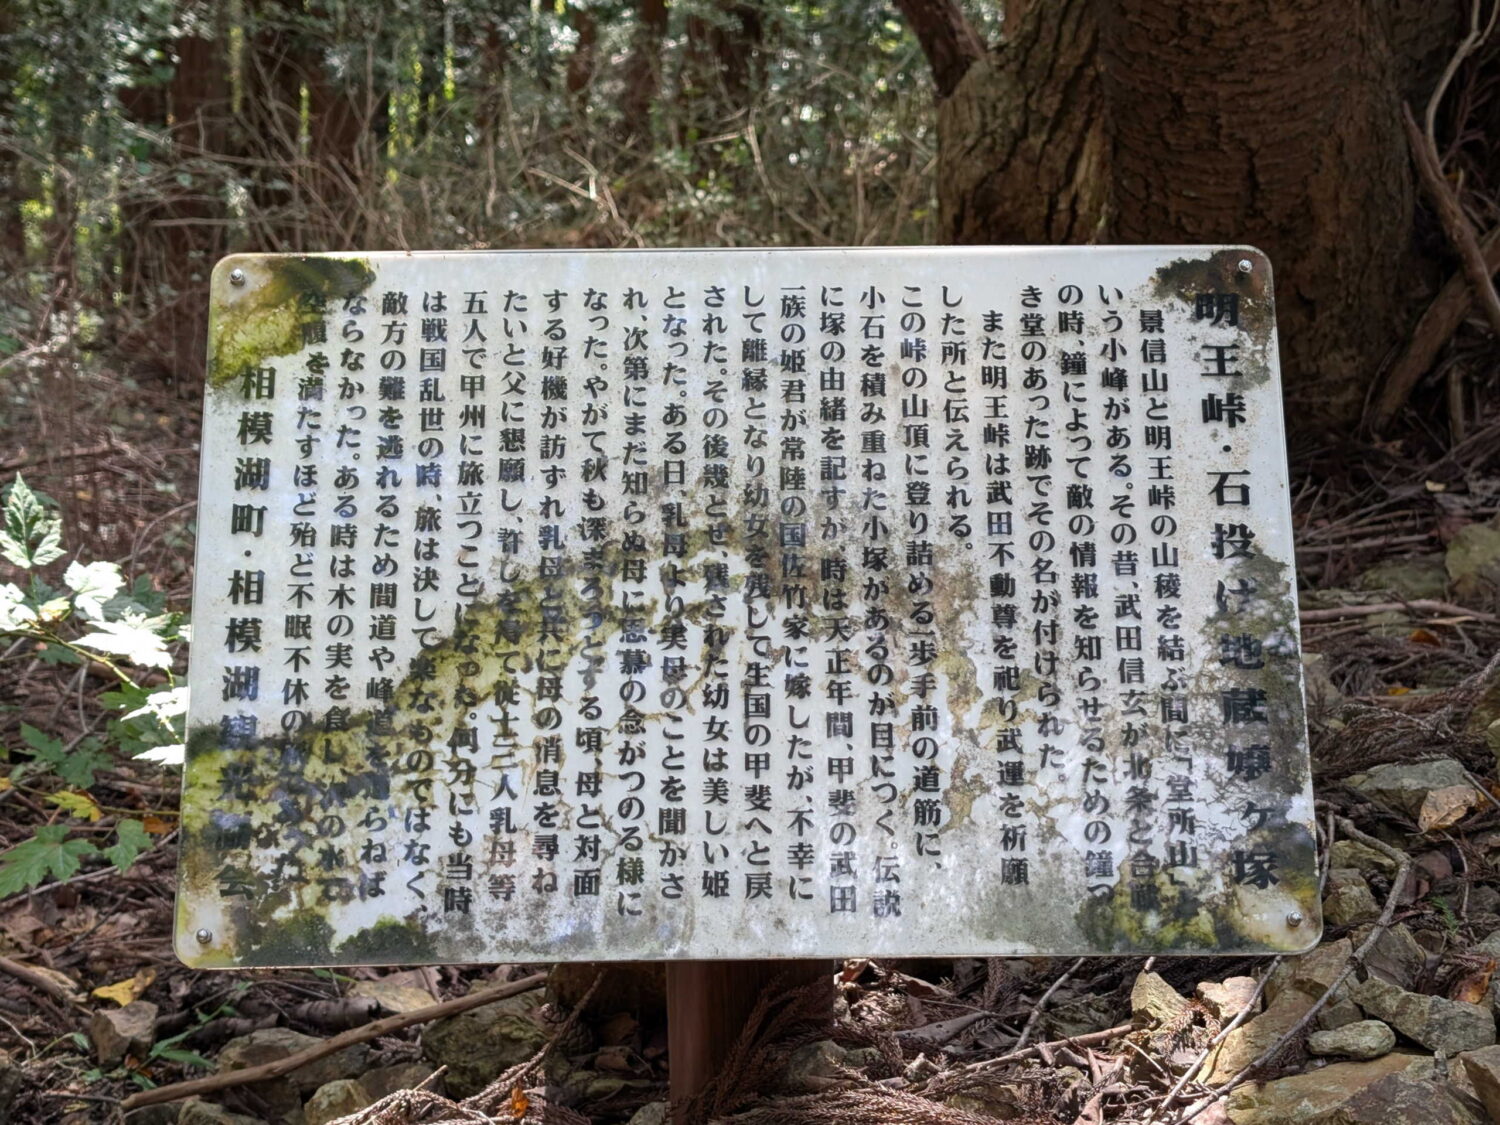 明王峠・石投げ地蔵嬢ヶ塚
景信山と明王峠の山稜を結ぶ間に「堂所山」と
いう小峰がある。その昔、武田信玄が北条と合戦
の時、鐘によって敵の情報を知らせるための鐘つ
き堂のあった跡でその名が付けられた。
また明王峠は武田不動尊を祀り武運を祈願
した所と伝えられる。
この峠の山頂に登り詰める一歩手前の道筋に、
小石を積み重ねた小塚があるのが目につく。伝説
に塚の由緒を記すが、時は天正年間、甲斐の武田
一族の姫君が常陸の国佐竹家に嫁したが、不幸に
して離縁となり幼女を残して生国の甲斐へと戻
された。その後幾とせ、残された幼女は美しい姫
となった。ある日、乳母より実母のことを聞かさ
れ、次第にまだ知らぬ母に思慕の念がつのる様に
なった。やがて秋も深まろうとする頃、母と対面
する好機が訪ずれ乳母と共に母の消息を尋ね
たいと父に懇願し、許しを得て従士三人乳母等
五人で甲州に旅立つことになった。何分にも当時
は戦国乱世の時、旅は決して楽なものではなく、
敵方の難を逃れるため間道や峰道を らねば
ならなかった。ある時は木の実を食し の水で
空腹を満たすほど殆ど不眠不休の
相模湖町・相模湖観光協会